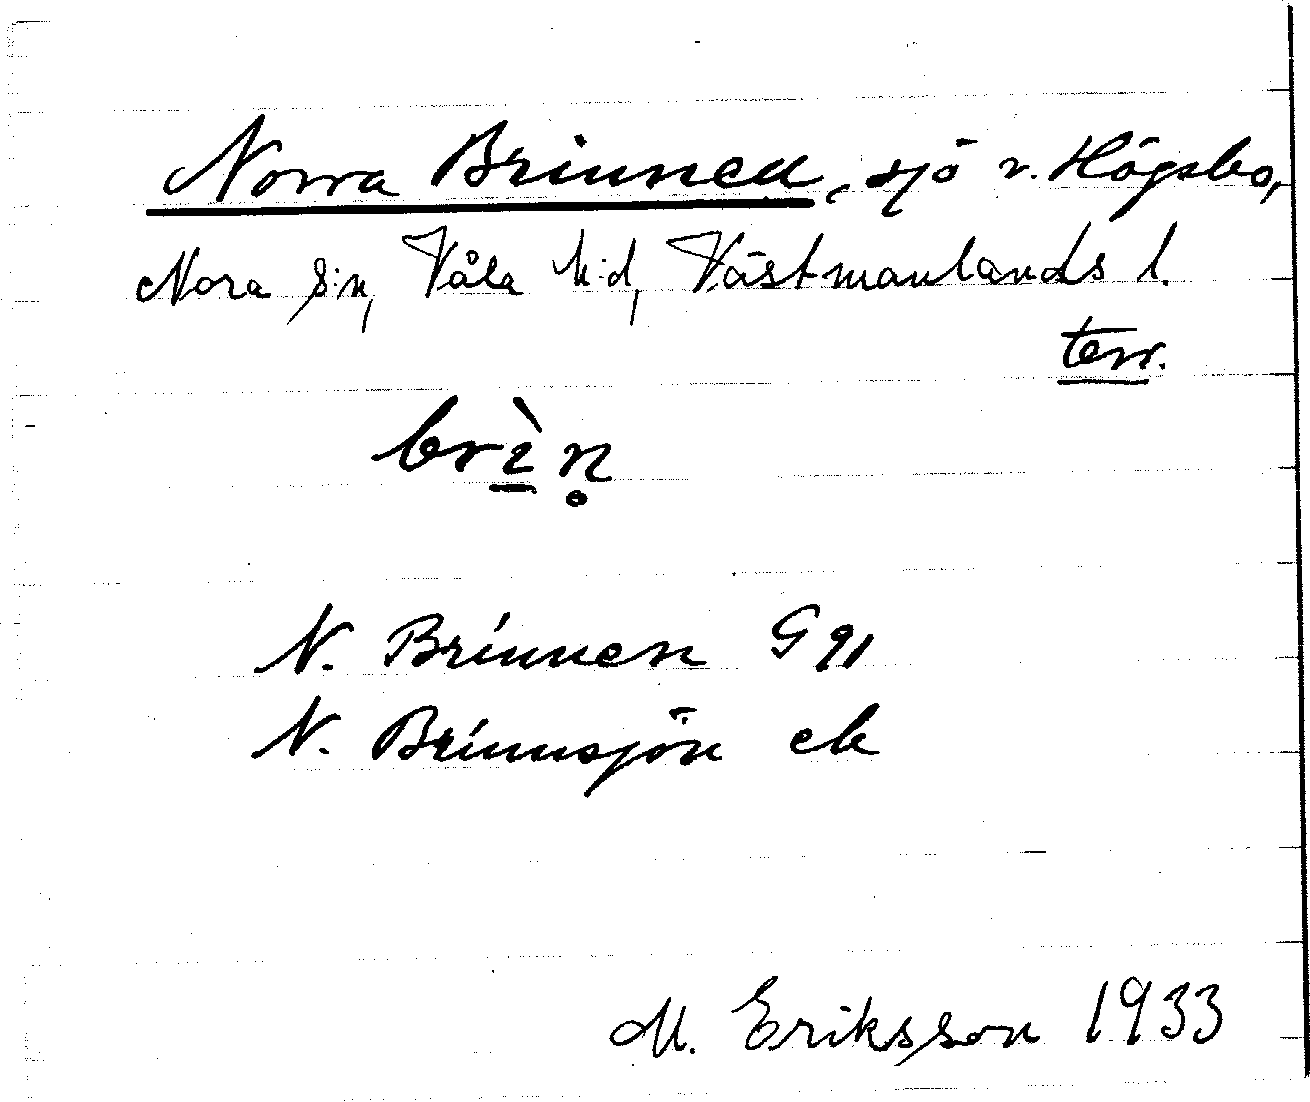 Norra Brinnen, sjö v. Högsbo,
Nora s:n, Våla h:d, Västmanlands l.
terr.
brìn̥
N. Brinnen G 91
N. Brinnsjön ek
M. Eriksson 1933